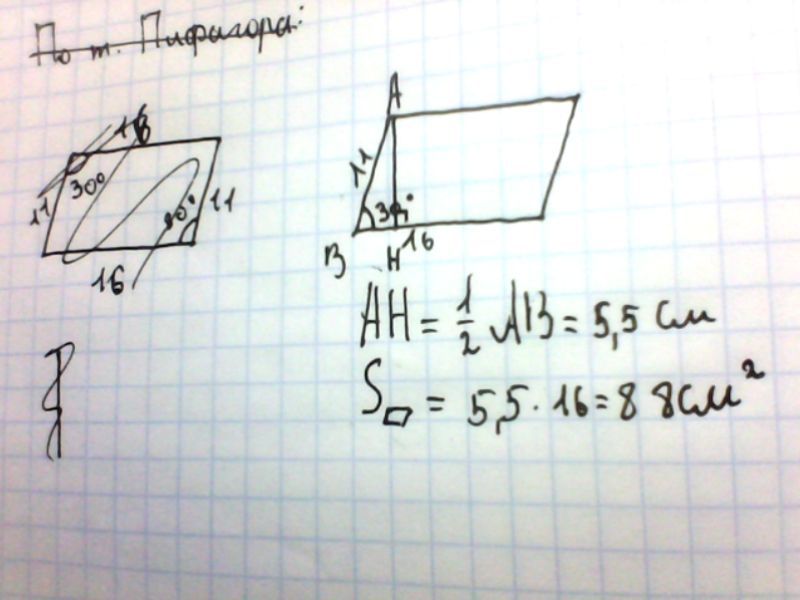 По т. Пифагора:
16
30°
11
11
16
A
11
30°
16
B
H
AH = 1/2 AB = 5,5 см
S▱ = 5,5 · 16 = 88 см²